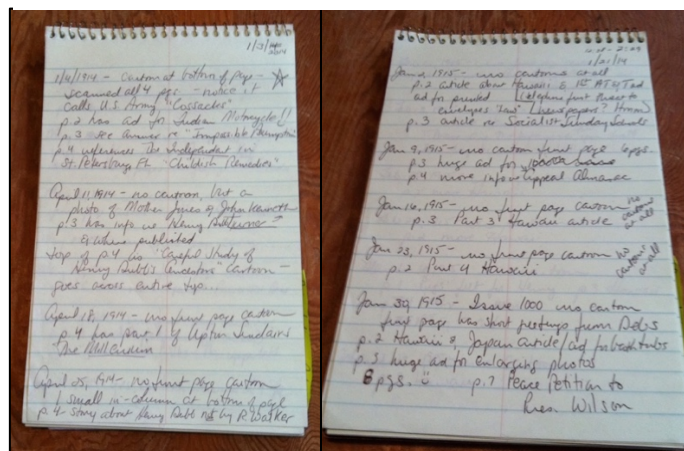 1/3/
2014
1/4/1914 - Cartoon at bottom of page -
scanned all 4 pgs - notice it
calls U.S. Army "Cossacks"
p. 2 has ad for Indian Motorcycle!!
p. 3 see answer re "Impossible
p. 4 references The Independent in
St. Petersburg, FL "Childish Remedies"
April 11, 1914 - no cartoon, but a
photo of Mother Jones & John Kenneth
p. 3 has info re Henry Dubb
& where published
top of p. 4 is "Careful Study of
Henry Dubb's Ancestors" cartoon -
goes across entire top...
April 18, 1914 - no front page cartoon
p. 4 has part 1 of Upton Sinclair's
The
April 25, 1914 - no front page cartoon
p. 1 small in-column at bottom of page
p. 4 - story about Henry Dubb not by R. Walker
1/21/14
Jan 2, 1915 - no cartoons at all
p. 2 article about Hawaii & 1st
ad for
p. 3 article re Socialist Sunday Schools
Jan 9, 1915 - no cartoon front page 6 pgs.
p. 3 huge ad for
p. 4 more info re Appeal Almanac
Jan 16, 1915 - no front page cartoon no
p. 3 Part 3 Hawaii article cartoons
at all
Jan 23, 1915 - no front page cartoon no
p. 2 Part 4 Hawaii cartoons
at all
Jan 30, 1915 - Issue 1000 no cartoon
first page has short greetings from Debs
p. 2 Hawaii & Japan article/ad for bath tubs
p. 3 huge ad for enlarging photos
8 pgs. p. 7 Peace Petition to
Pres. Wilson